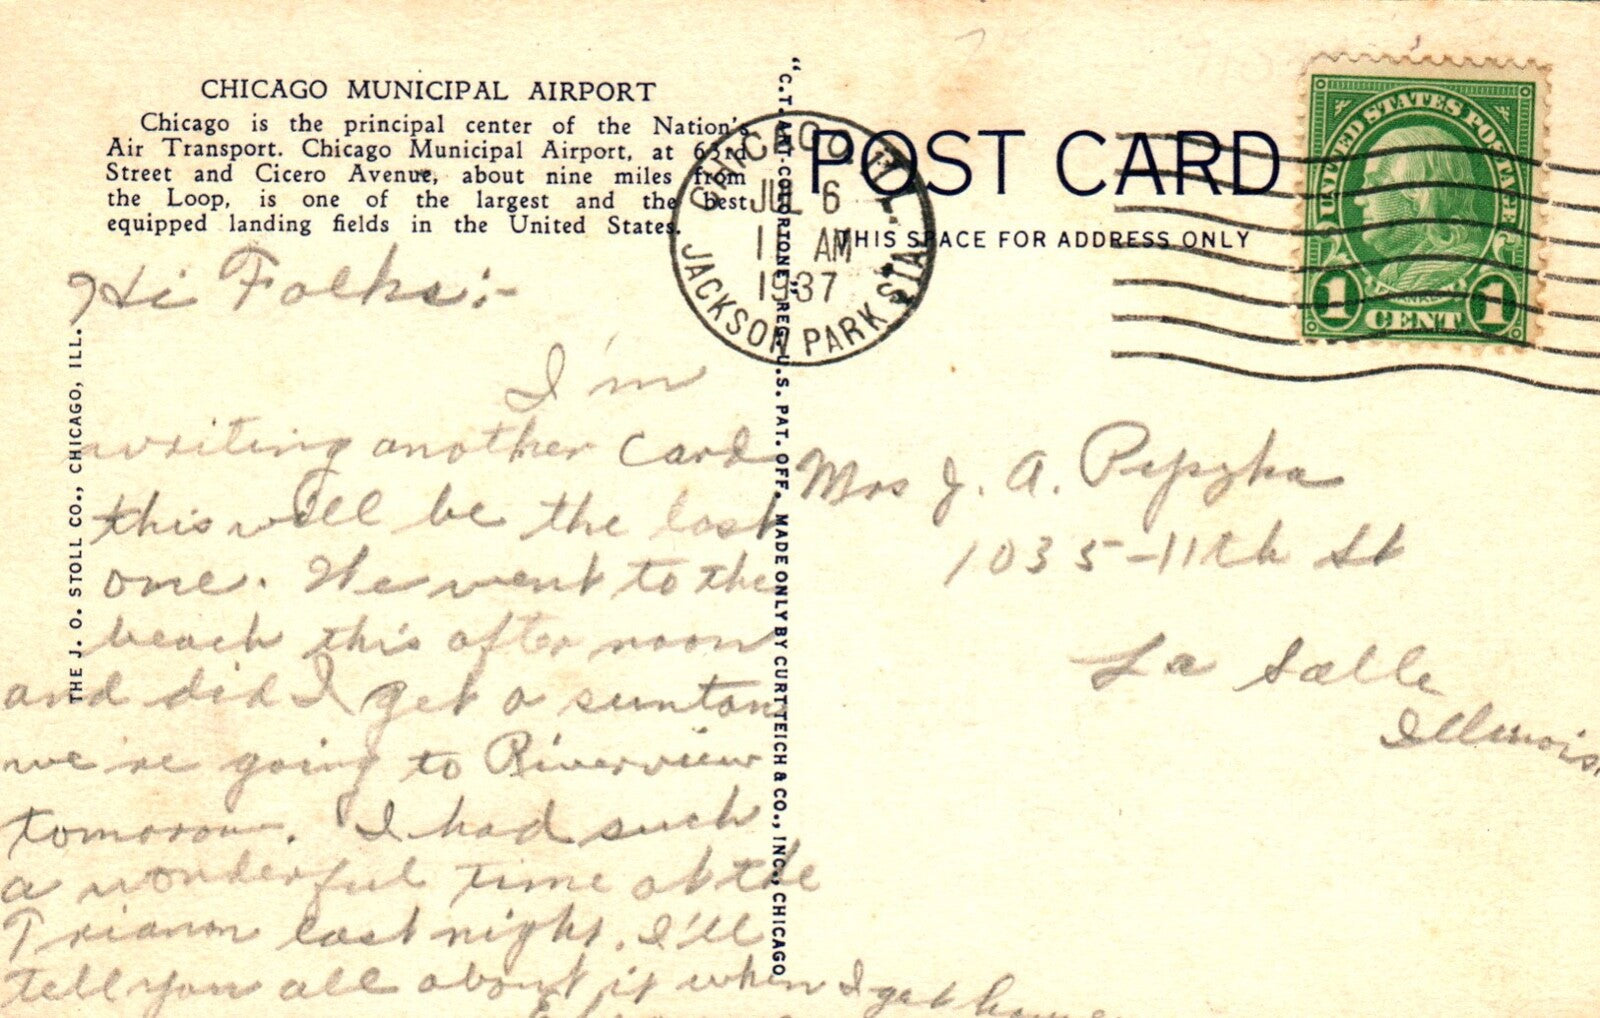 CHICAGO MUNICIPAL AIRPORT
Chicago is the principal center of the Nation's
Air Transport. Chicago Municipal Airport, at 63rd
Street and Cicero Avenue, about nine miles from
the Loop, is one of the largest and the best
equipped landing fields in the United States.
Hi Folks:-
I'm
writing another card
this will be the last
one. We went to the
beach this after noon
and did I get a suntan
we're going to Riverview
tomorow. I had such
a wonderful time at the
Trianon last night. I'll
tell you all about it when I get home
THE J. O. STOLL CO., CHICAGO, ILL.
"C.T. ART-COLORTONE" REG. U.S. PAT. OFF. MADE ONLY BY CURT TEICH & CO., INC., CHICAGO
CHICAGO, ILL.
JUL 6
AM
1937
JACKSON PARK STA.
POST CARD
THIS SPACE FOR ADDRESS ONLY
UNITED STATES POSTAGE
FRANKLIN
1 CENT 1
Mrs J. A.
1035-11th St
La Salle
Illinois